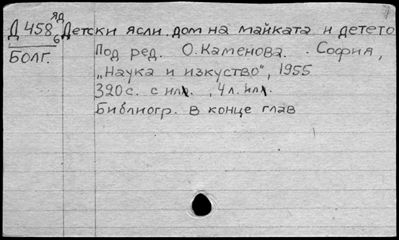 Д 458 яд 6 Детски ясли. дом на майката и детето
БОЛГ. Под ред. О. Каменова. София,
„Наука и изкуство", 1955
320с. с илл. , 4л. илл.
Библиогр. в конце глав